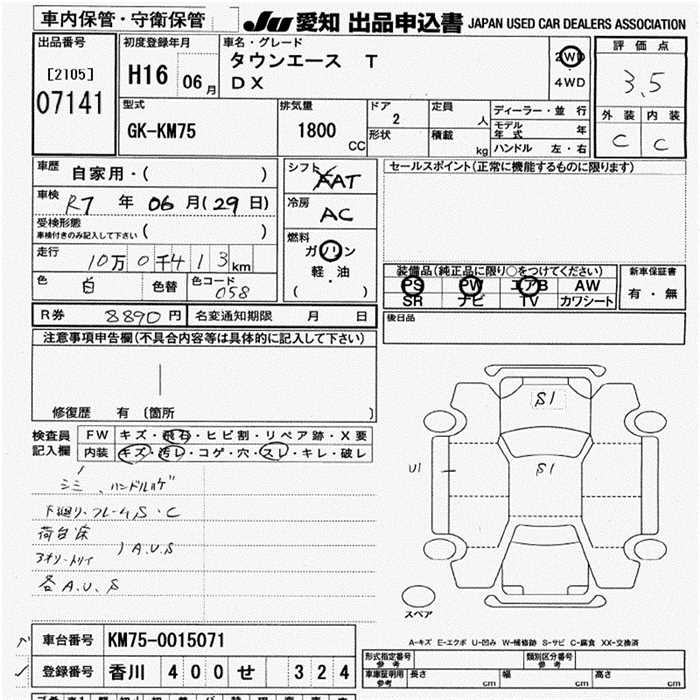 車内保管・守衛保管
JU 愛知 出品申込書 JAPAN USED CAR DEALERS ASSOCIATION
出品番号
[2105]
07141
初度登録年月
H16 06月
車名・グレード
タウンエース T
DX
2WD
4WD
評価点
3.5
外装 内装
C C
型式
GK-KM75
排気量
1800 CC
ドア 2
形状
定員 人
積載 kg
ディーラー・並行
モデル年式 年
ハンドル 左・右
車歴 自家用・( )
車検 R7 年 06 月(29日)
受検形態
車検付きのみ記入して下さい ( )
走行 10万0千413km
色 白 色替 色コード 058
シフト AAT
冷房 AC
燃料
ガソリン
軽・油
( )
セールスポイント(正常に機能するものに限ります)
装備品(純正品に限り○をつけてください)
PS PW エアB AW
SR ナビ TV カワシート
新車保証書
有・無
R券 8890円 名変通知期限 月 日
後日品
注意事項申告欄(不具合内容等は具体的に記入して下さい)
修復歴 有 〔箇所 〕
検査員記入欄
FW キズ・飛石・ヒビ割・リペア跡・X要
内装 キズ・汚レ・コゲ・穴・スレ・キレ・破レ
シミ、ハンドルハゲ
下廻り・フレームS・C
荷台床
アオリ・トリイ )A.U.S
各A.U.S
S1
S1
U1
スペア
A-キズ E-エクボ U-凹み W-補修跡 S-サビ C-腐食 XX-交換済
車台番号 KM75-0015071
登録番号 香川 400 せ 324
形式指定番号 参考 類別区分番号 参考
車庫証明用 参考 長さ cm 幅 cm 高さ cm